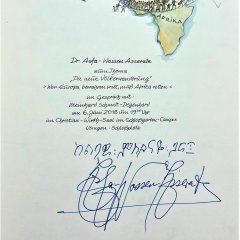 AFRIKA
Dr. Asfa-Wossen Asserate
zum Thema
"Die neue Völkerwanderung"
> Wer Europa bewahren will, muß Afrika retten <
im Gespräch mit
Meinhard Schmidt-Degenhard
am 6. Juni 2018 um 19⁰⁰ Uhr
im Christian-Wirth-Saal im Schloßgarten-Campus
Usingen · Schloßplatz
Asfa-Wossen Asserate